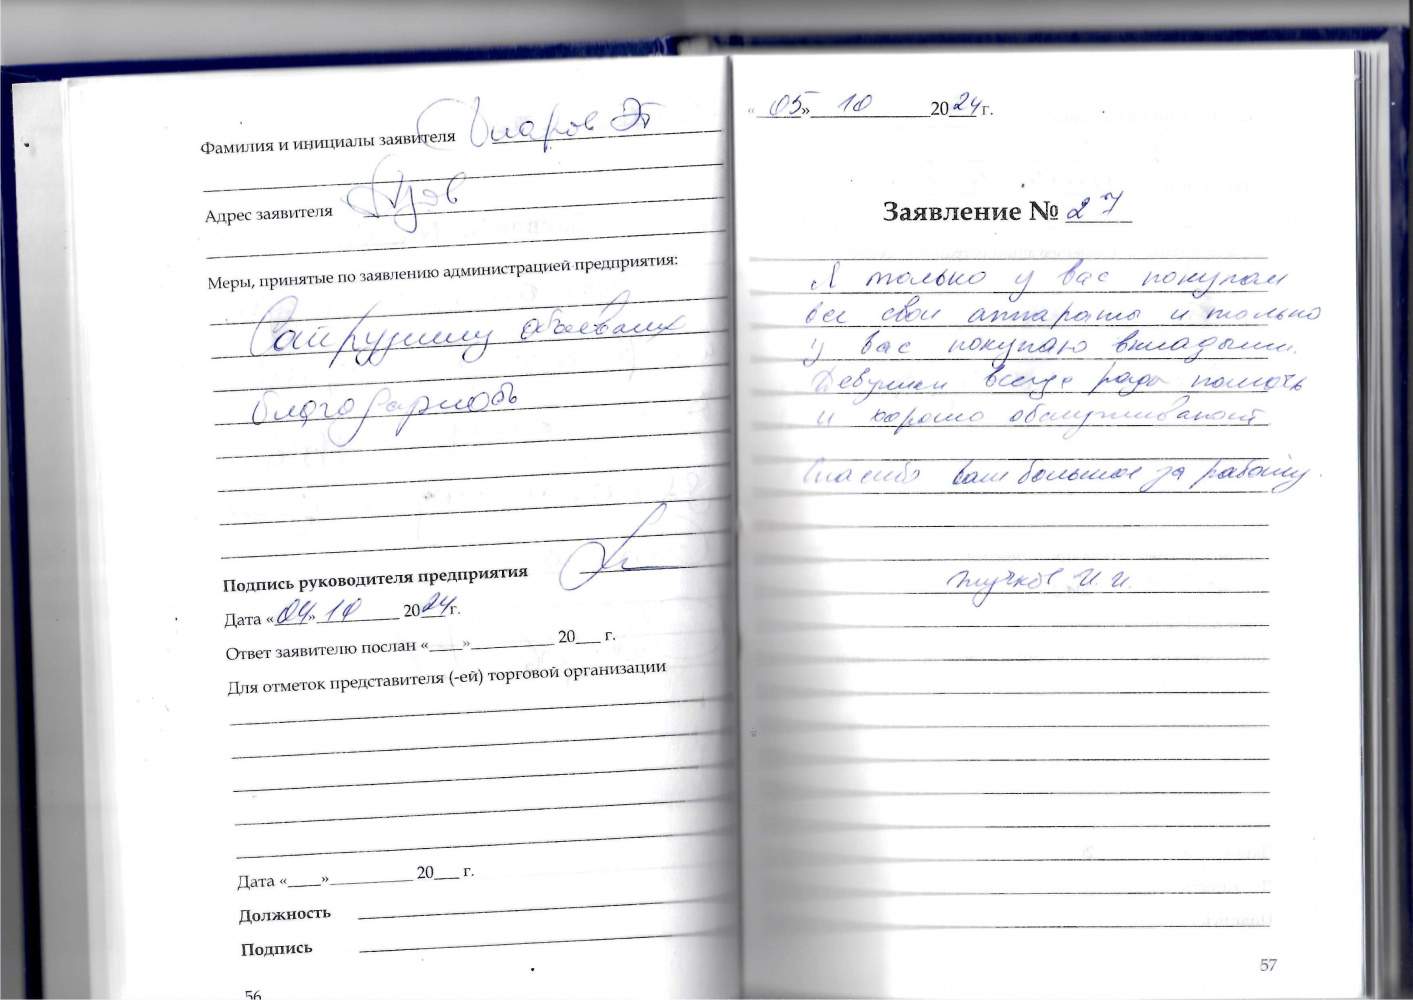 Фамилия и инициалы заявителя
Адрес заявителя
Меры, принятые по заявлению администрацией предприятия:
объявить
благодарность
Подпись руководителя предприятия
Дата «04» 10 2024 г.
Ответ заявителю послан «____»__________ 20___ г.
Для отметок представителя (-ей) торговой организации
Дата «____»__________ 20___ г.
Должность
Подпись
56
«05» 10 2024 г.
Заявление № 27
Я только у вас покупаю
все свои аппараты и только
у вас покупаю вкладыши.
Девушки всегда рады помочь
и хорошо обслуживают
Спасибо вам большое за работу.
Жучков И. И.
57